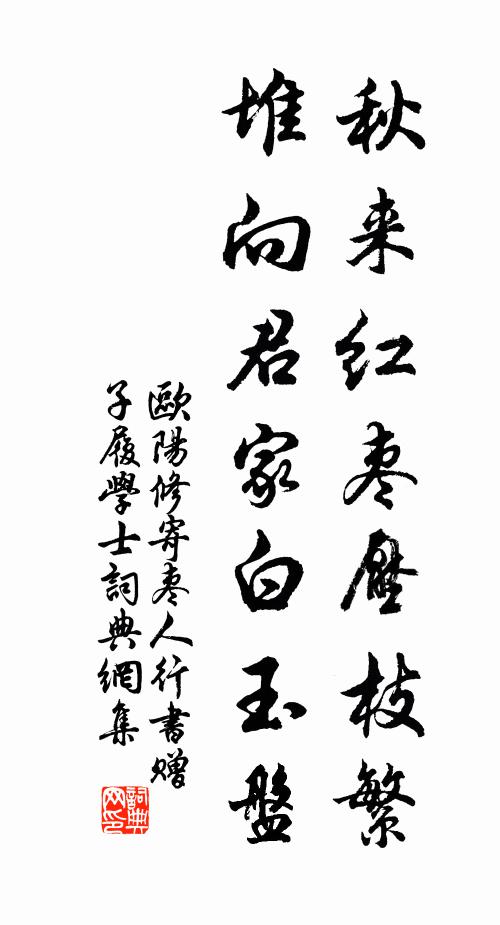 秋来红枣壓枝繁
堆向君家白玉盤
歐陽修寄枣人行書赠
子履學士詞典網集
詞典
网印